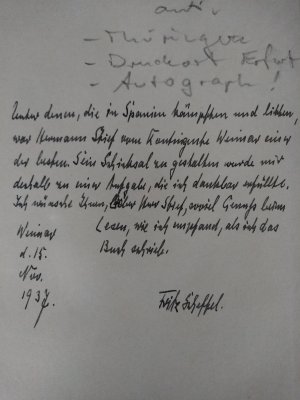 anti:
- Thüringen
- Druckort Erfurt
- Autograph!
Unter denen, die in Spanien kämpften und litten,
war Hermann Stief vom Kontingente Weimar einer
der besten. Sein Schicksal zu gestalten wurde mir
deshalb zu einer Aufgabe, die ich dankbar erfüllte.
Ich wünsche Ihnen, lieber Herr Stief, soviel Genuß beim
Lesen, wie ich empfand, als ich das
Buch schrieb.
Weimar
d. 15.
Nov.
1937.
Fritz Scheffel.